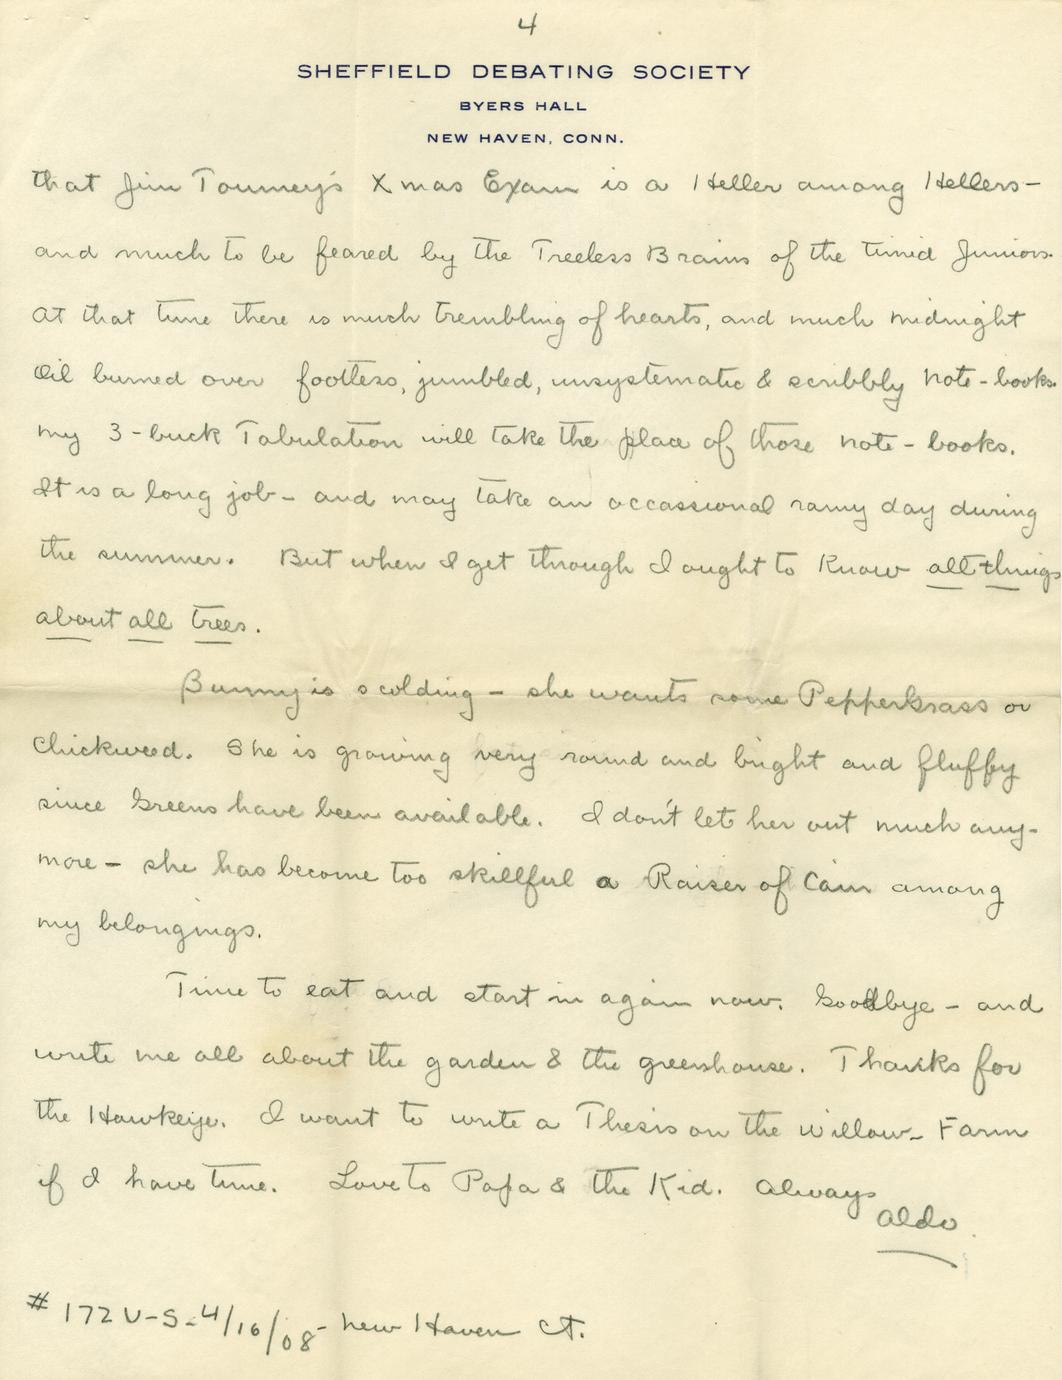 4
SHEFFIELD DEBATING SOCIETY
BYERS HALL
NEW HAVEN, CONN.
that Jim Toumey's Xmas Exam is a Heller among Hellers –
and much to be feared by the Treeless Brains of the timid Juniors.
At that time there is much trembling of hearts, and much midnight
Oil burned over footless, jumbled, unsystematic & scribbly note-books.
My 3-buck Tabulation will take the place of those note-books.
It is a long job – and may take an occassional rainy day during
the summer. But when I get through I ought to Know all things
about all trees.
Bunny is scolding – she wants some PepperGrass or
Chickweed. She is growing very round and bright and fluffy
since Greens have been available. I don't let her out much any-
more – she has become too skillful a Raiser of Cain among
my belongings.
Time to eat and start in again now. Goodbye – and
write me all about the garden & the greenhouse. Thanks for
the Hawkeye. I want to write a Thesis on the Willow-Farm
if I have time. Love to Papa & the Kid. Always
Aldo.
# 172 V-S-4/16/08- New Haven Ct.